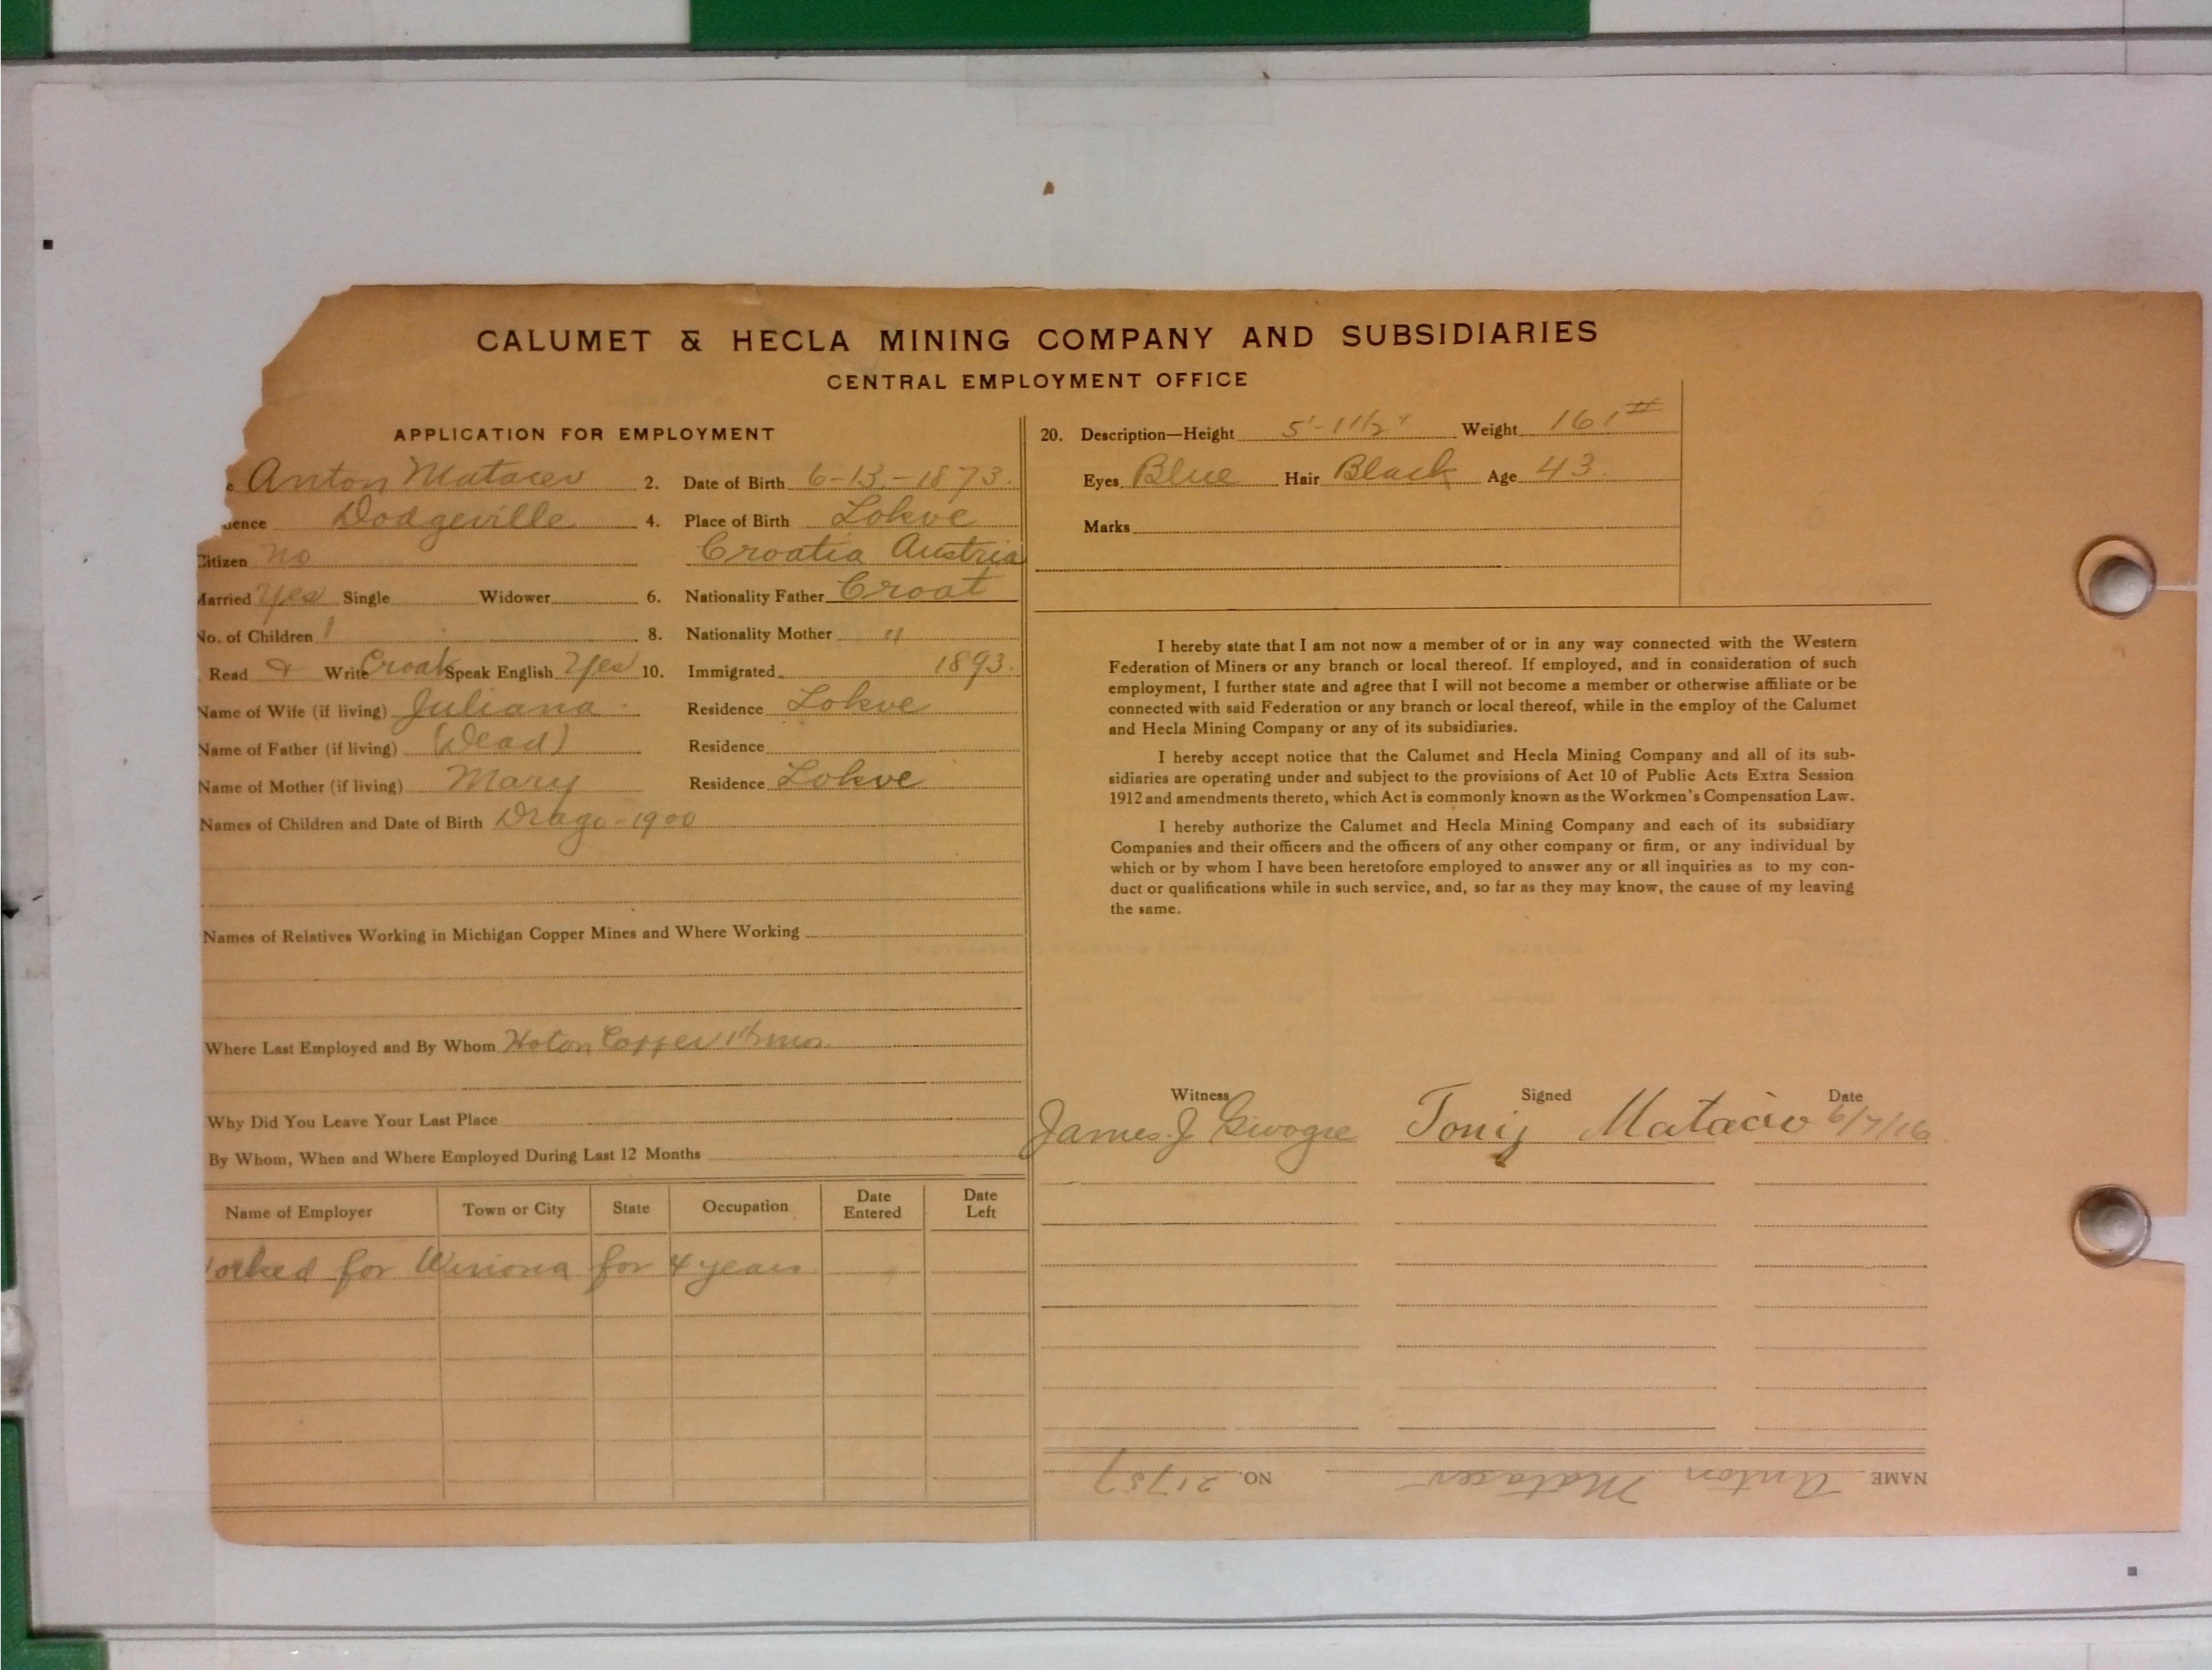 CALUMET & HECLA MINING COMPANY AND SUBSIDIARIES
CENTRAL EMPLOYMENT OFFICE
APPLICATION FOR EMPLOYMENT
e Anton Matacev 2. Date of Birth 6-13-1873.
dence Dodgeville 4. Place of Birth Lokve
Citizen no Croatia Austria
Married Yes Single Widower 6. Nationality Father Croat
No. of Children 1 8. Nationality Mother "
Read & Write Croat Speak English Yes 10. Immigrated 1893.
Name of Wife (if living) Juliana Residence Lokve
Name of Father (if living) (Dead) Residence
Name of Mother (if living) Mary Residence Lokve
Names of Children and Date of Birth Drago-1900
Names of Relatives Working in Michigan Copper Mines and Where Working
Where Last Employed and By Whom Copper mos.
Why Did You Leave Your Last Place
By Whom, When and Where Employed During Last 12 Months
Name of Employer Town or City State Occupation Date Entered Date Left
orked for Winona for 4 years
20. Description—Height 5'-11½" Weight 161#
Eyes Blue Hair Black Age 43.
Marks
I hereby state that I am not now a member of or in any way connected with the Western
Federation of Miners or any branch or local thereof. If employed, and in consideration of such
employment, I further state and agree that I will not become a member or otherwise affiliate or be
connected with said Federation or any branch or local thereof, while in the employ of the Calumet
and Hecla Mining Company or any of its subsidiaries.
I hereby accept notice that the Calumet and Hecla Mining Company and all of its sub-
sidiaries are operating under and subject to the provisions of Act 10 of Public Acts Extra Session
1912 and amendments thereto, which Act is commonly known as the Workmen's Compensation Law.
I hereby authorize the Calumet and Hecla Mining Company and each of its subsidiary
Companies and their officers and the officers of any other company or firm, or any individual by
which or by whom I have been heretofore employed to answer any or all inquiries as to my con-
duct or qualifications while in such service, and, so far as they may know, the cause of my leaving
the same.
Witness Signed Date
James J Tonij Matacev 6/7/16
NAME Anton Matacev NO. 21757